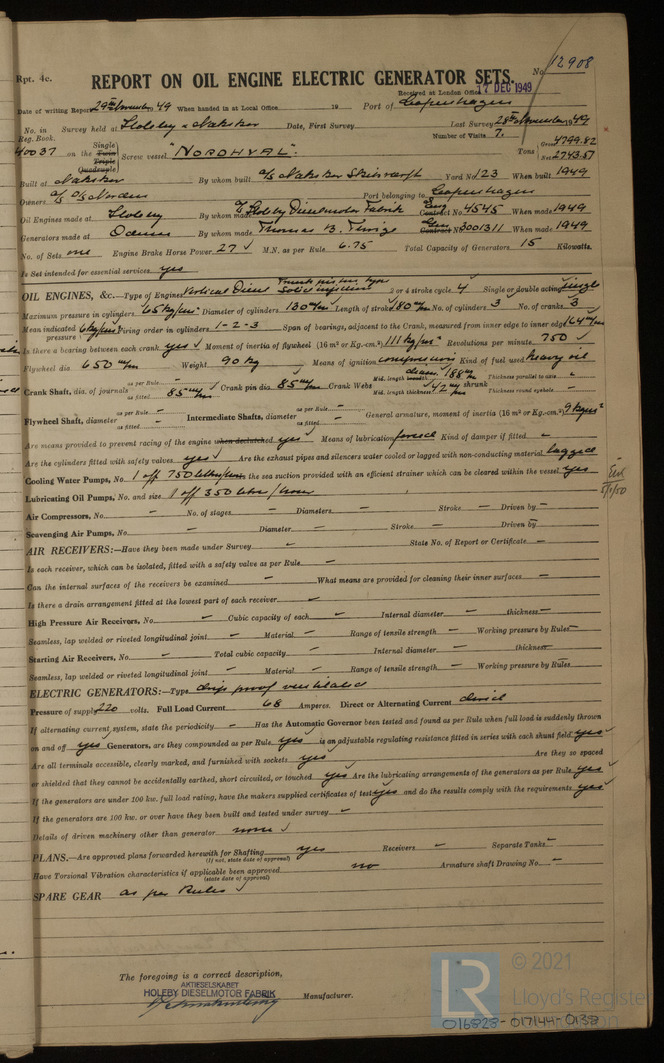 Rpt. 4c.
No. 12908
REPORT ON OIL ENGINE ELECTRIC GENERATOR SETS.
Received at London Office 17 DEC 1949
Date of writing Report 29th November 49 When handed in at Local Office 19 Port of Copenhagen
No. in Reg. Book. Survey held at Holeby & Nakskov Date, First Survey Last Survey 28th November 1949
Number of Visits 7.
40037 on the Single Twin Triple Quadruple Screw vessel "NORDHVAL". Tons Gross 4799.82 Net 2743.57
Built at Nakskov By whom built A/S Nakskov Skibsvaerft Yard No. 123 When built 1949
Owners A/S D/S Norden Port belonging to Copenhagen
Oil Engines made at Holeby By whom made A/S Holeby Dieselmotor Fabrik Eng Contract No. 4545 When made 1949
Generators made at Odense By whom made Thomas B. Thrige Contract No. 3001311 When made 1949
No. of Sets one Engine Brake Horse Power 27 M.N. as per Rule 6.75 Total Capacity of Generators 15 Kilowatts.
Is Set intended for essential services yes
OIL ENGINES, &c.—Type of Engines Vertical Diesel Trunk piston type Solid injection 2 or 4 stroke cycle 4 Single or double acting single
Maximum pressure in cylinders 65 kg/cm² Diameter of cylinders 130 m/m Length of stroke 180 m/m No. of cylinders 3 No. of cranks 3
Mean indicated pressure 6 kg/cm² Firing order in cylinders 1-2-3 Span of bearings, adjacent to the Crank, measured from inner edge to inner edge 164 m/m
Is there a bearing between each crank yes Moment of inertia of flywheel (16 m² or Kg.-cm.²) 111 kg/m² Revolutions per minute 750
Flywheel dia. 650 m/m Weight 90 kg Means of ignition compression Kind of fuel used heavy oil
Crank Shaft, dia. of journals as per Rule - as fitted 85 m/m Crank pin dia. 85 m/m Crank Webs Mid. length breadth 188 m/m Mid. length thickness 42 m/m shrunk Thickness parallel to axis - Thickness round eyehole -
Flywheel Shaft, diameter as per Rule - as fitted Intermediate Shafts, diameter as per Rule - as fitted General armature, moment of inertia (16 m² or Kg.-cm.²) 9 kgm²
Are means provided to prevent racing of the engine when declutched yes Means of lubrication forced Kind of damper if fitted -
Are the cylinders fitted with safety valves yes Are the exhaust pipes and silencers water cooled or lagged with non-conducting material lagged
Cooling Water Pumps, No. 1 off 750 litre/hour Is the sea suction provided with an efficient strainer which can be cleared within the vessel yes
Lubricating Oil Pumps, No. and size 1 off 350 litre/hour
5/1/50
Air Compressors, No. - No. of stages - Diameters - Stroke - Driven by -
Scavenging Air Pumps, No. - Diameter - Stroke - Driven by -
AIR RECEIVERS:—Have they been made under Survey - State No. of Report or Certificate -
Is each receiver, which can be isolated, fitted with a safety valve as per Rule -
Can the internal surfaces of the receivers be examined - What means are provided for cleaning their inner surfaces -
Is there a drain arrangement fitted at the lowest part of each receiver -
High Pressure Air Receivers, No. - Cubic capacity of each - Internal diameter - thickness -
Seamless, lap welded or riveted longitudinal joint - Material - Range of tensile strength - Working pressure by Rules -
Starting Air Receivers, No. - Total cubic capacity - Internal diameter - thickness -
Seamless, lap welded or riveted longitudinal joint - Material - Range of tensile strength - Working pressure by Rules -
ELECTRIC GENERATORS:—Type drip proof ventilated
Pressure of supply 220 volts. Full Load Current 68 Amperes. Direct or Alternating Current direct
If alternating current system, state the periodicity - Has the Automatic Governor been tested and found as per Rule when full load is suddenly thrown
on and off yes Generators, are they compounded as per Rule yes is an adjustable regulating resistance fitted in series with each shunt field yes
Are all terminals accessible, clearly marked, and furnished with sockets yes Are they so spaced
or shielded that they cannot be accidentally earthed, short circuited, or touched yes Are the lubricating arrangements of the generators as per Rule yes
If the generators are under 100 kw. full load rating, have the makers supplied certificates of test yes and do the results comply with the requirements yes
If the generators are 100 kw. or over have they been built and tested under survey -
Details of driven machinery other than generator none
PLANS.—Are approved plans forwarded herewith for Shafting yes Receivers - Separate Tanks -
(If not, state date of approval)
Have Torsional Vibration characteristics if applicable been approved no Armature shaft Drawing No. -
(state date of approval)
SPARE GEAR as per Rules
The foregoing is a correct description,
AKTIESELSKABET
HOLEBY DIESELMOTOR FABRIK
Manufacturer.
LR
© 2021
Lloyd's Register
Foundation
016828-017144-0138